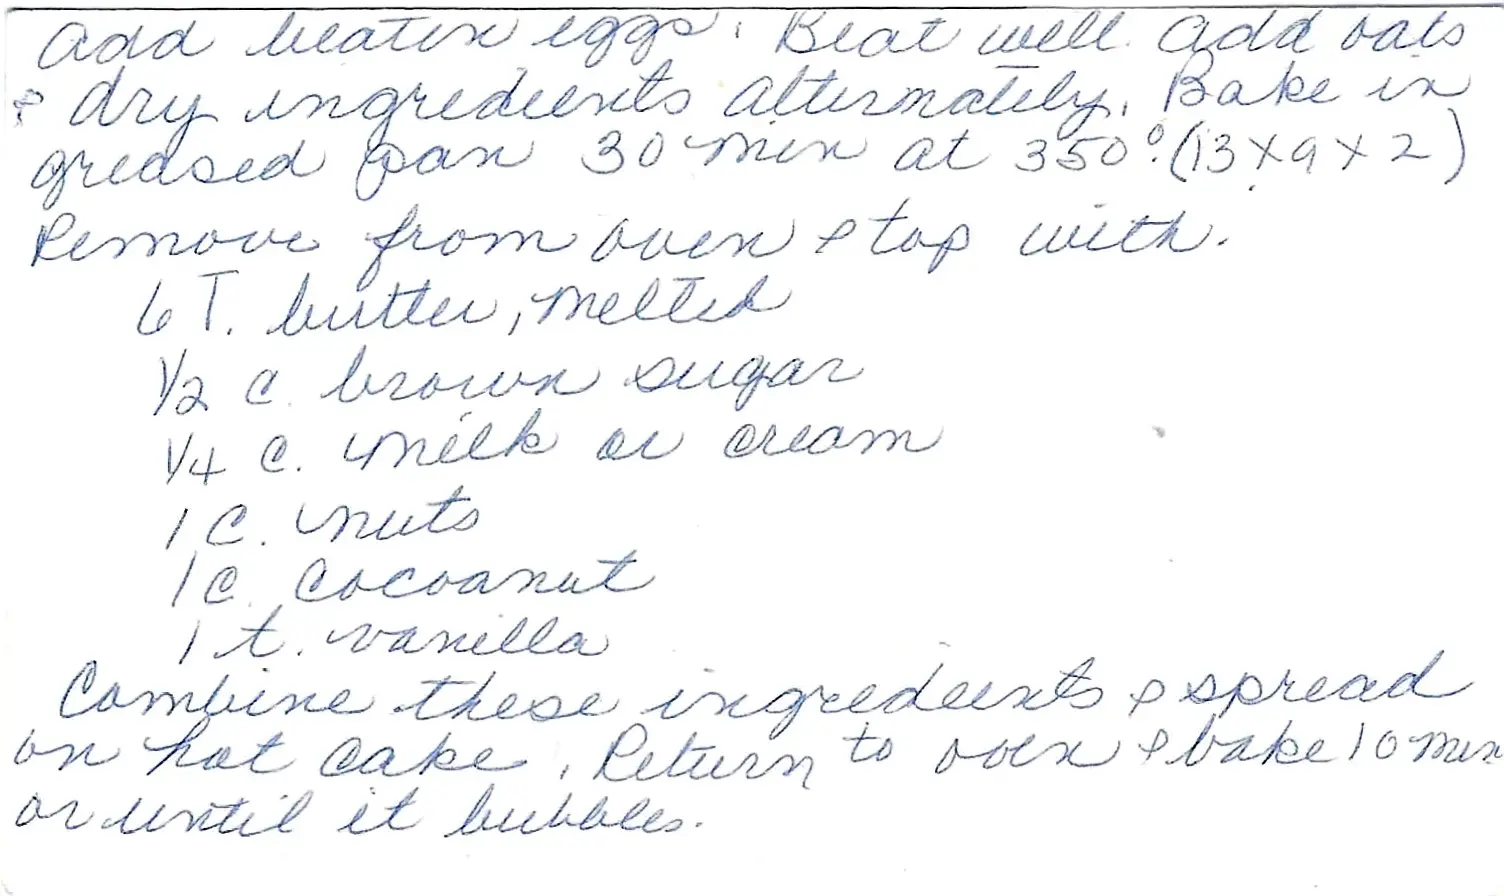 Add beaten eggs. Beat well. Add oats
& dry ingredients alternately. Bake in
greased pan 30 min at 350°. (13 x 9 x 2)
Remove from oven & top with.
6 T. butter, melted
1/2 c. brown sugar
1/4 c. milk or cream
1 c. nuts
1 c. cocoanut
1 t. vanilla
Combine these ingredients & spread
on hot cake. Return to oven & bake 10 min
or until it bubbles.